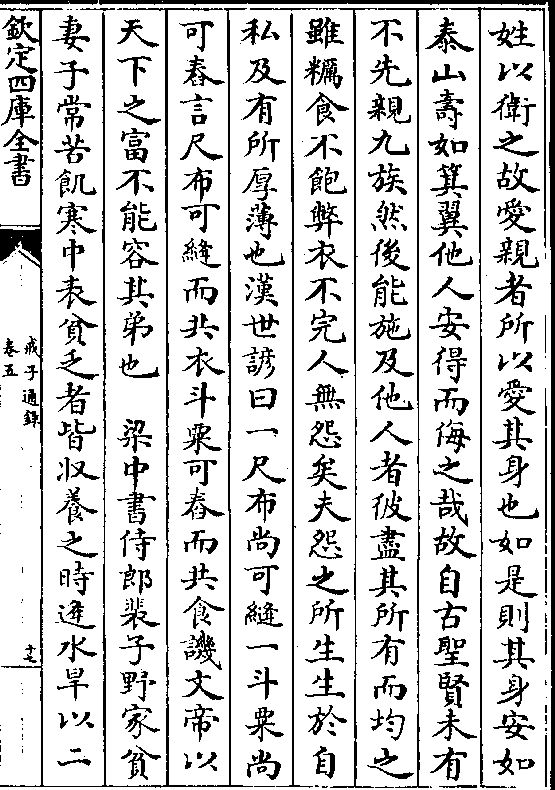 姓以衛之故愛親者所以愛其身也如是則其身安如
泰山壽如箕翼他人安得而侮之哉故自古聖賢未有
不先親九族然後能施及他人者彼盡其所有而均之
雖糲食不飽弊衣不完人無怨矣夫怨之所生生於自
私及有所厚薄也漢世諺曰一尺布尚可縫一斗粟尚
可舂言尺布可縫而共衣斗粟可舂而共食譏文帝以
天下之富不能容其弟也　梁中書侍郎裴子野家貧
妻子常苦飢寒中表貧乏者皆収養之時逢水旱以二
欽定四庫全書
戒子通錄
卷五
十七